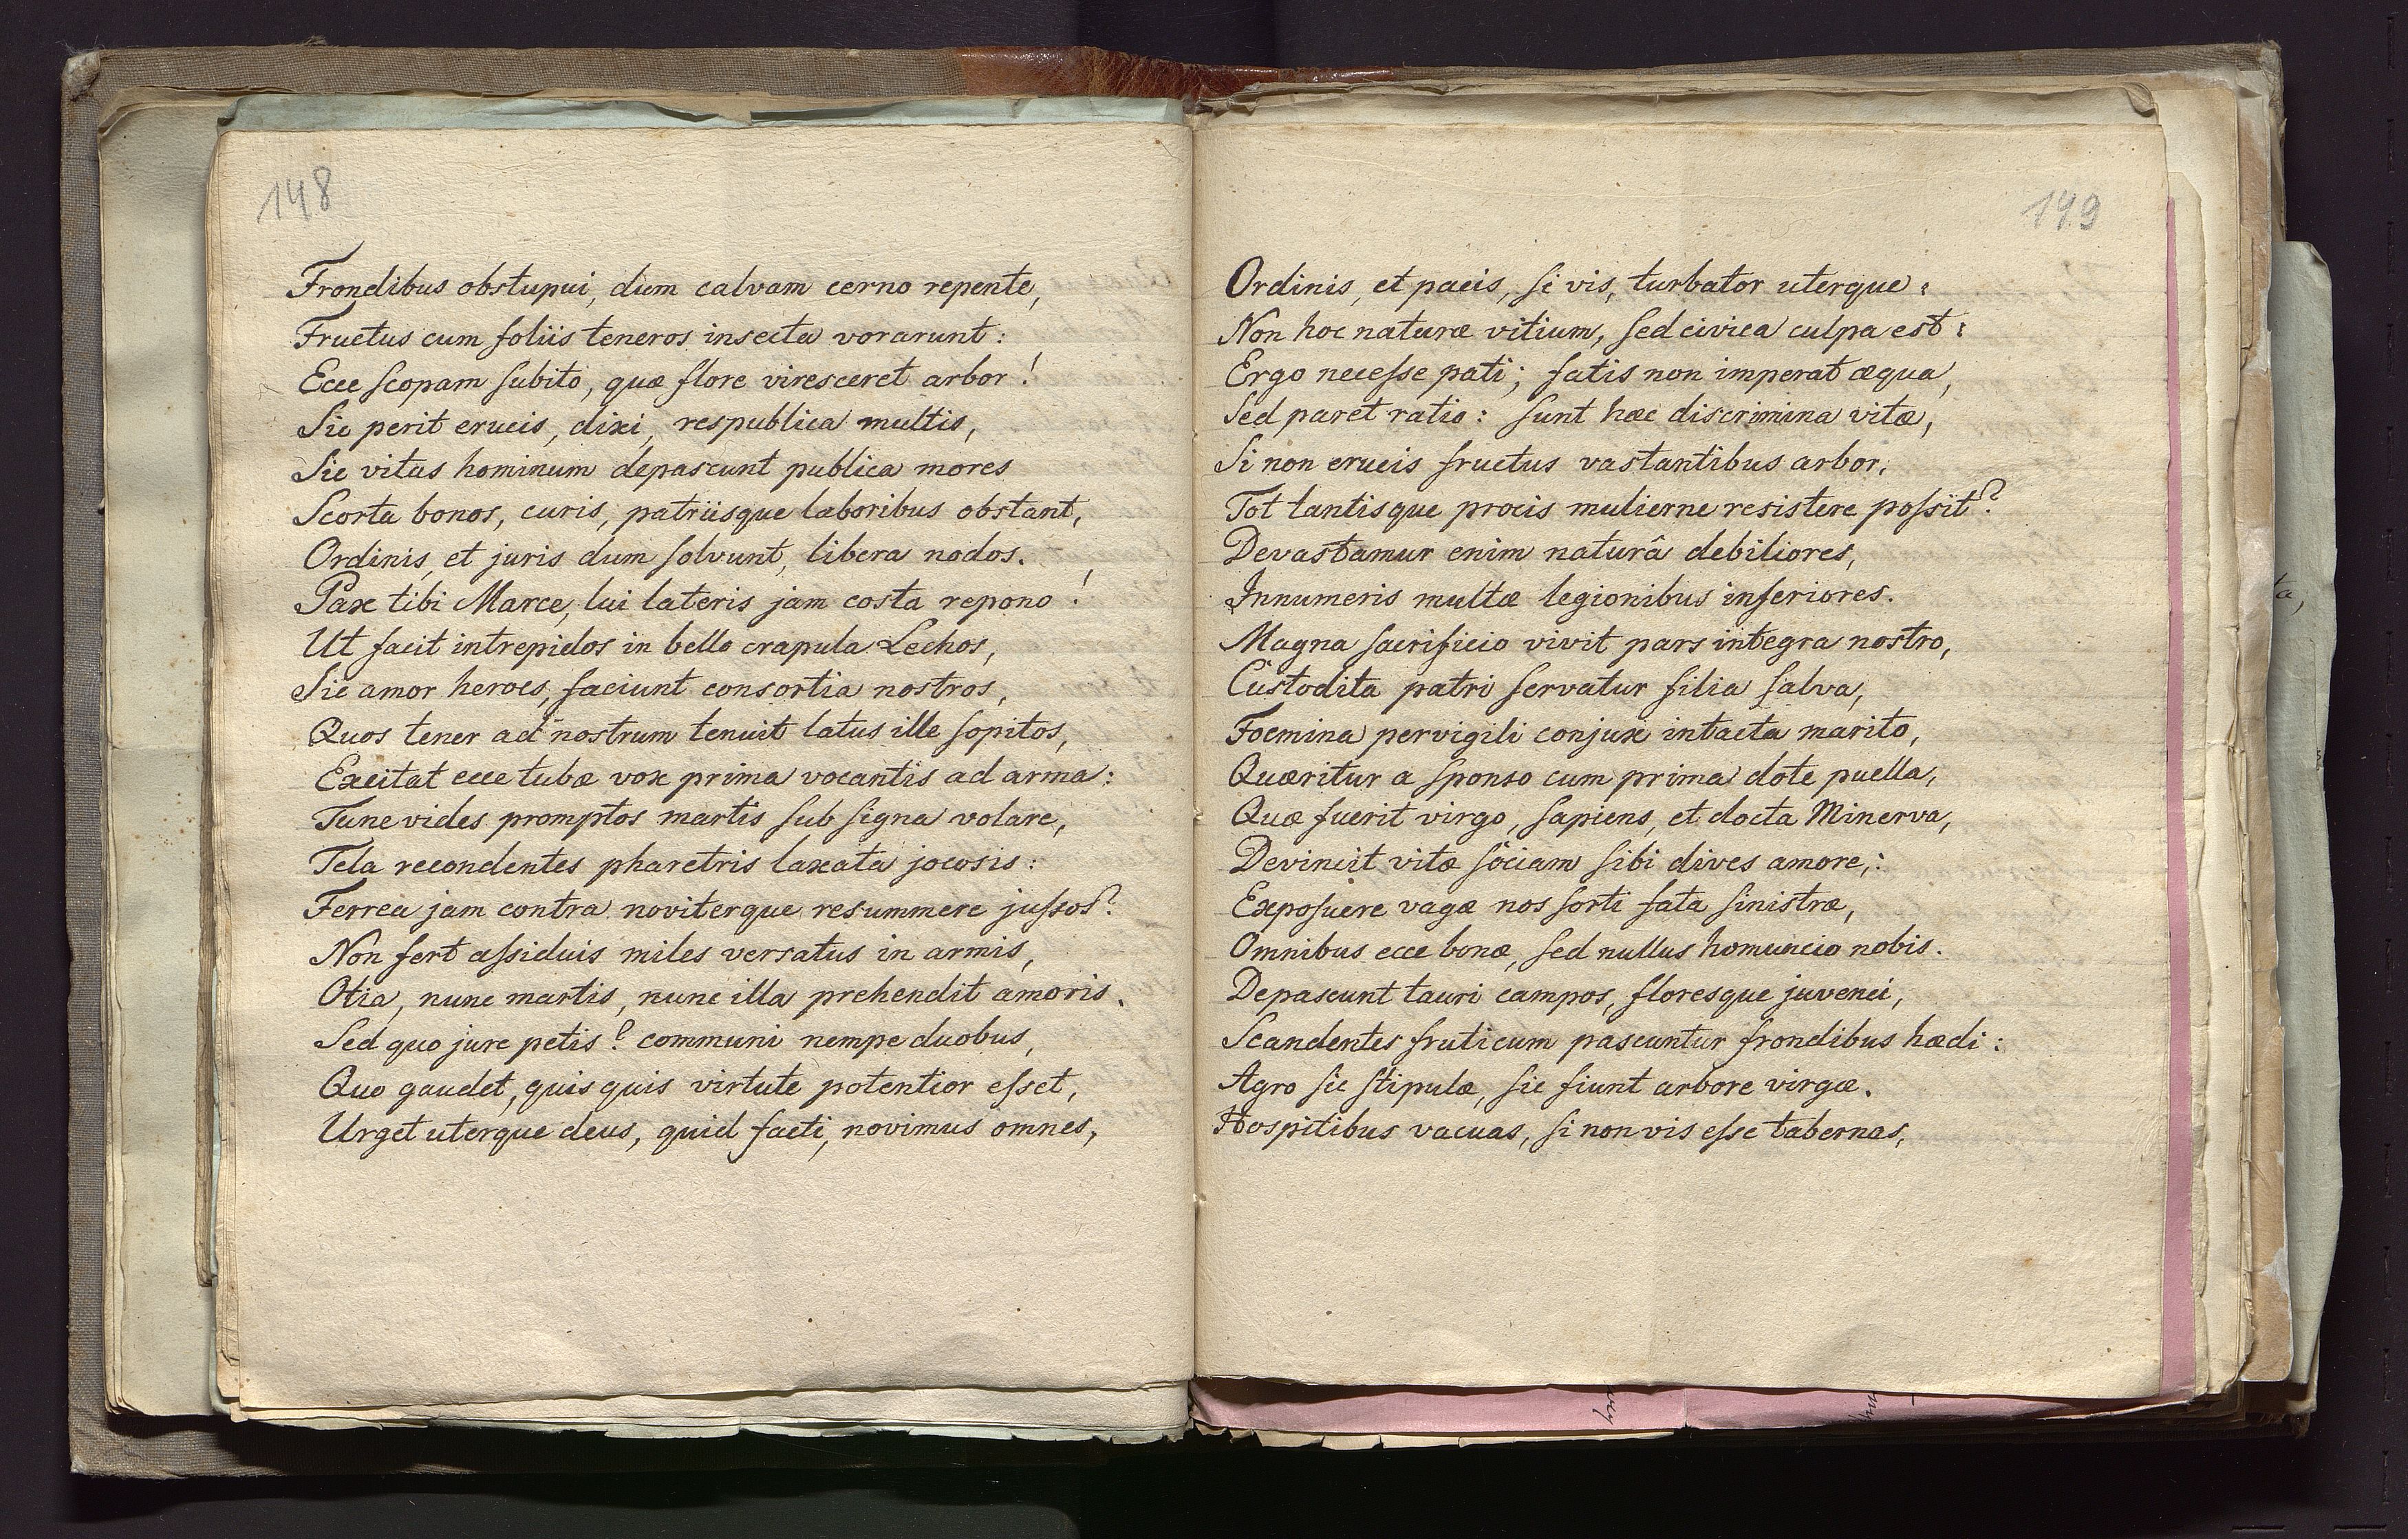 148
Frondibus obstupui, dum calvam cerno repente,
Fructus cum foliis teneros insecta vorarunt:
Ecce scopam subito, quæ flore viresceret arbor!
Sic perit erucis, dixi, respublica multis,
Sic vitas hominum depascunt publica mores
Scorta bonos, curis, patriisque laboribus obstant,
Ordinis, et juris dum solvunt, libera nodos.
Pax tibi Marce, lui lateris jam costa repono!
Ut facit intrepidos in bello crapula Lechos,
Sic amor heroes, faciunt consortia nostros,
Quos tener ad nostrum tenuit latus ille sopitos,
Excitat ecce tubæ vox prima vocantis ad arma:
Tunc vides promptos martis sub signa volare,
Tela recondentes pharetris laxata jocosis:
Ferrea jam contra noviterque resummere jussos?
Non fert assiduis miles versatus in armis,
Otia, nunc martis, nunc illa prehendit amoris.
Sed quo jure petis? communi nempe duobus,
Quo gaudet, quisquis virtute potentior esset,
Urget uterque deus, quid facti, novimus omnes,
149
Ordinis, et pacis, si vis, turbator uterque:
Non hoc naturæ vitium, sed civica culpa est:
Ergo necesse pati; fatis non imperat æqua,
Sed paret ratio: sunt hæc discrimina vitæ,
Si non erucis fructus vastantibus arbor,
Tot tantisque procis mulierne resistere possit?
Devastamur enim naturâ debiliores,
Innumeris multæ legionibus inferiores.
Magna sacrificio vivit pars integra nostro,
Custodita patri servatur filia salva,
Foemina pervigili conjux intacta marito,
Quæritur a sponso cum prima dote puella,
Quæ fuerit virgo, sapiens, et docta Minerva,
Devincit vitæ sociam sibi dives amore,:
Exposuere vagæ nos sorti fata sinistræ,
Omnibus ecce bonæ, sed nullus homuncio nobis.
Depascunt tauri campos, floresque juvenci,
Scandentes fruticum pascuntur frondibus hædi:
Agro sic stipulæ, sic fiunt arbore virgæ.
Hospitibus vacuas, si non vis esse tabernas,
ta,